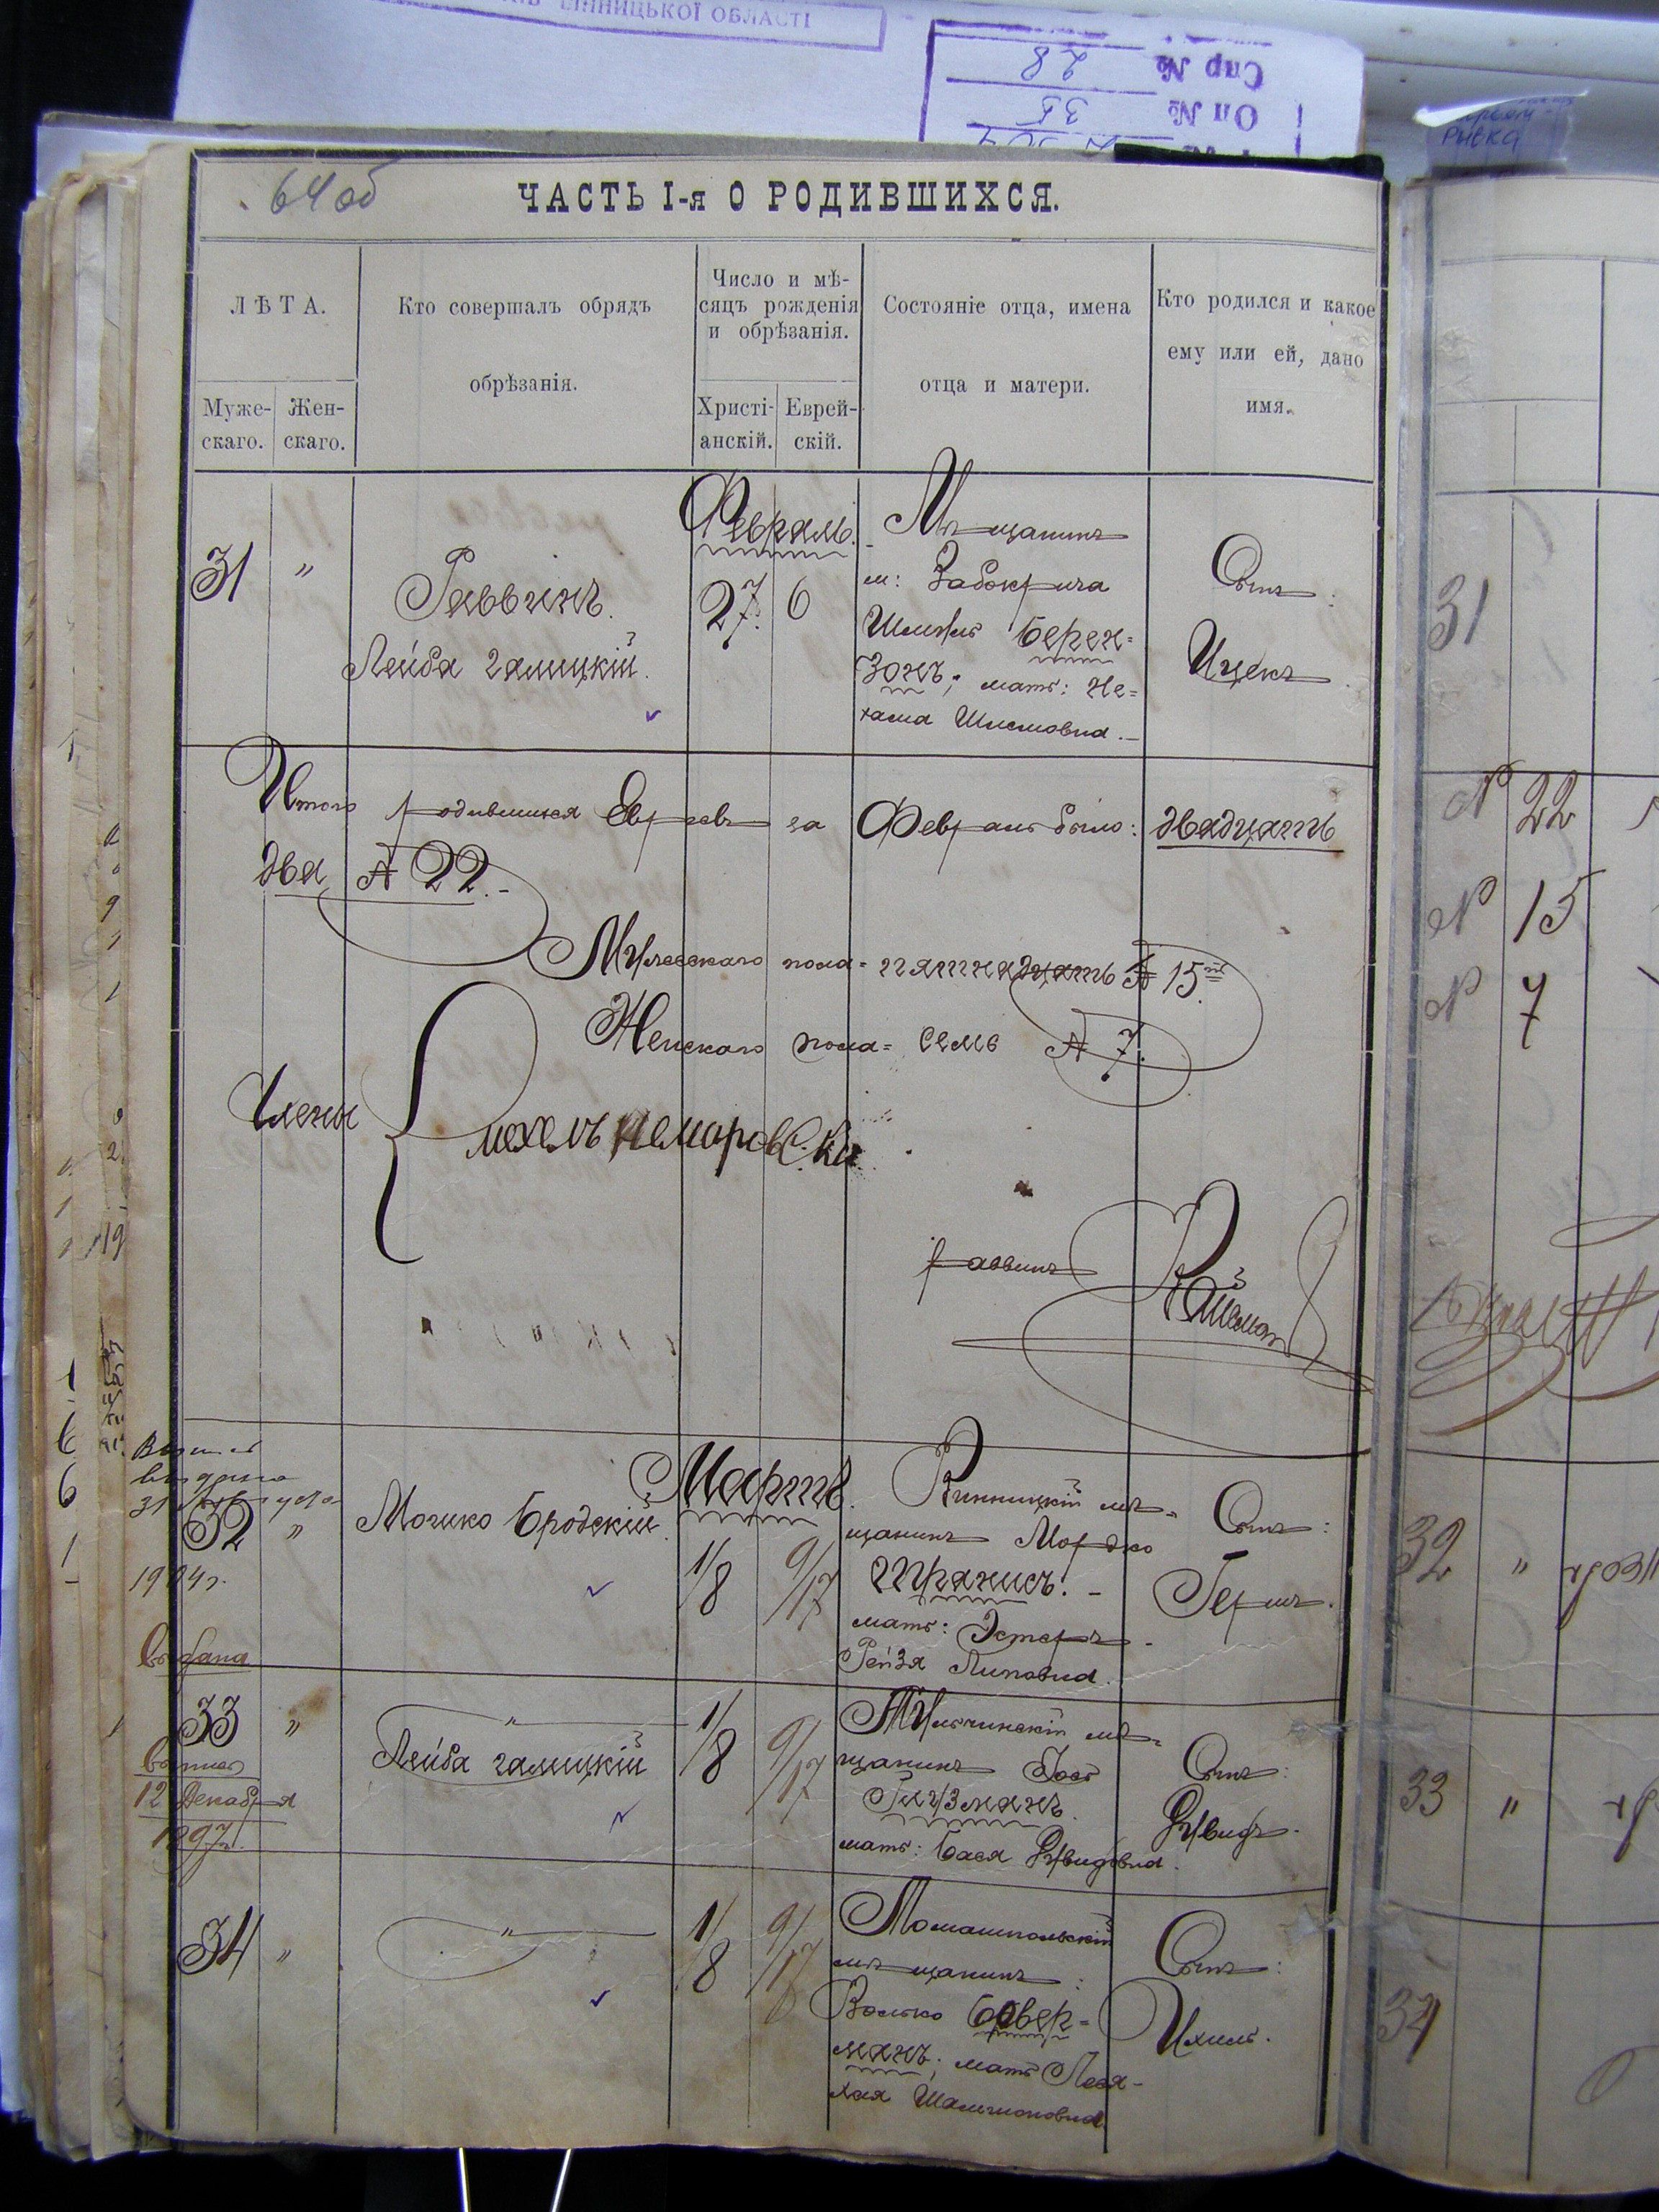 ВІННИЦЬКОЇ ОБЛАСТІ
Спр № 28
Оп № 35
РИВКА
64 об
ЧАСТЬ I-я О РОДИВШИХСЯ.
ЛѢТА.
Муже-
скаго.
Жен-
скаго.
Кто совершалъ обрядъ
обрѣзанія.
Число и мѣ-
сяцъ рожденія
и обрѣзанія.
Христі-
анскій.
Еврей-
скій.
Состояніе отца, имена
отца и матери.
Кто родился и какое
ему или ей, дано
имя.
Февраль.
31 "
Раввинъ.
Лейба Галицкій.
27. 6
Мѣщанинъ
м: Забокрича
Шмуль Берен=
зонъ; мать: Не=
хама Шлемовна.
Сынъ:
Ицекъ
Итого родившихся Евреевъ за Февраль было: двадцать
два № 22.
Мужескаго пола = пятнадцать № 15
Женскаго пола = семь № 7.
Члены
раввинъ
Мартъ.
32 "
1904 г.
выдана
Мошко Бродскій
1/8 9/17
Винницкій мѣ=
щанинъ Мордко
Спранисъ.
мать: Эстеръ
Рейзя Липовна.
Сынъ:
Гершъ.
33 "
12 Декабря
1897 г.
"
Лейба Галицкій
1/8 9/17
Тульчинскій мѣ=
щанинъ Іось
Глузманъ.
мать: Бася Дувидовна.
Сынъ:
Дувидъ.
34 "
"
1/8 9/17
Томашпольскій
мѣщанинъ:
Волько Бовер=
манъ; мать
Хая
Сынъ:
Ихиль.
31
№ 22
№ 15
№ 7
32 "
33 "
34